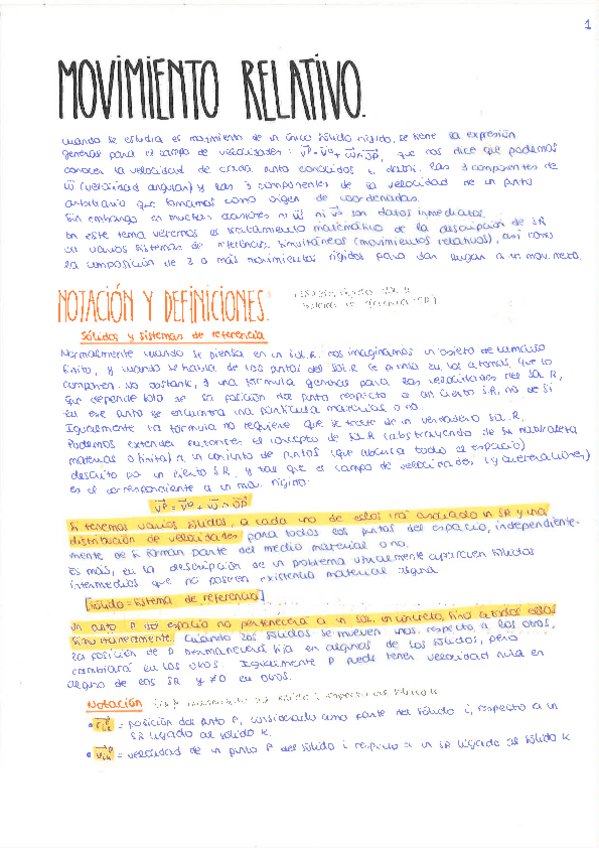 1
MOVIMIENTO RELATIVO.
Cuando se estudia el movimiento de un único sólido rígido, se tiene la expresión
general para el campo de velocidades: v^P = v^O + ω ∧ OP, que nos dice que podemos
conocer la velocidad de cada punto conocidos datos: las 3 componentes de
ω (velocidad angular) y las 3 componentes de la velocidad de un punto
arbitrario que tomamos como origen de coordenadas.
Sin embargo en muchas ocasiones ni ω ni v^O son datos inmediatos.
En este tema veremos el tratamiento matemático de la descripción de SR
en varios sistemas de referencia simultáneos (movimientos relativos), así como
la composición de 2 o más movimientos rígidos para dar lugar a un mov. neto.
NOTACIÓN Y DEFINICIONES.
Sólidos y sistemas de referencia
Normalmente cuando se piensa en un sol. R. nos imaginamos un objeto de tamaño
finito, y cuando se habla de los puntos del sol. R se piensa en los átomos que lo
componen. No obstante, la fórmula general para las velocidades del sol R,
que depende solo de la posición del punto respecto a un cierto SR, no de si
en ese punto se encuentra una partícula material o no.
Igualmente la fórmula no requiere que se trate de un verdadero sol. R.
Podemos extender entonces el concepto de sol. R (abstrayendo de su naturaleza
material o finita) a un conjunto de puntos (que abarca todo el espacio)
descrito por un cierto SR, y tal que el campo de velocidades (y aceleraciones)
es el correspondiente a un mov. rígido:
v^P = v^O + ω ∧ OP
Si tenemos varios sólidos, a cada uno de ellos irá asociado un SR y una
distribución de velocidades para todos los puntos del espacio, independiente-
mente de si forman parte del medio material o no.
Es más, en la descripción de un problema usualmente aparecen sólidos
intermedios que no poseen existencia material alguna
[sólido = sistema de referencia]
Un punto P del espacio no pertenecerá a un sol. en concreto, sino a todos ellos
simultáneamente. Cuando los sólidos se mueven unos respecto a los otros,
la posición de P permanecerá fija en algunos de los sólidos, pero
cambiará en los otros. Igualmente P puede tener velocidad nula en
alguno de los SR y ≠0 en otros.
Notación {i/k} movimiento del sólido i respecto al sólido k
• r^P_ik = posición del punto P, considerado como parte del sólido i, respecto a un
SR ligado al sólido k.
• v^P_ik = velocidad de un punto P del sólido i respecto a un SR ligado al sólido k